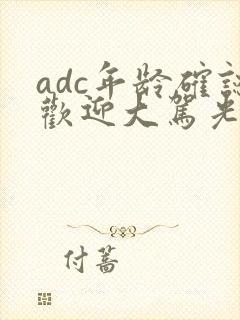 adc年龄確認
歡迎大駕光
付蔷